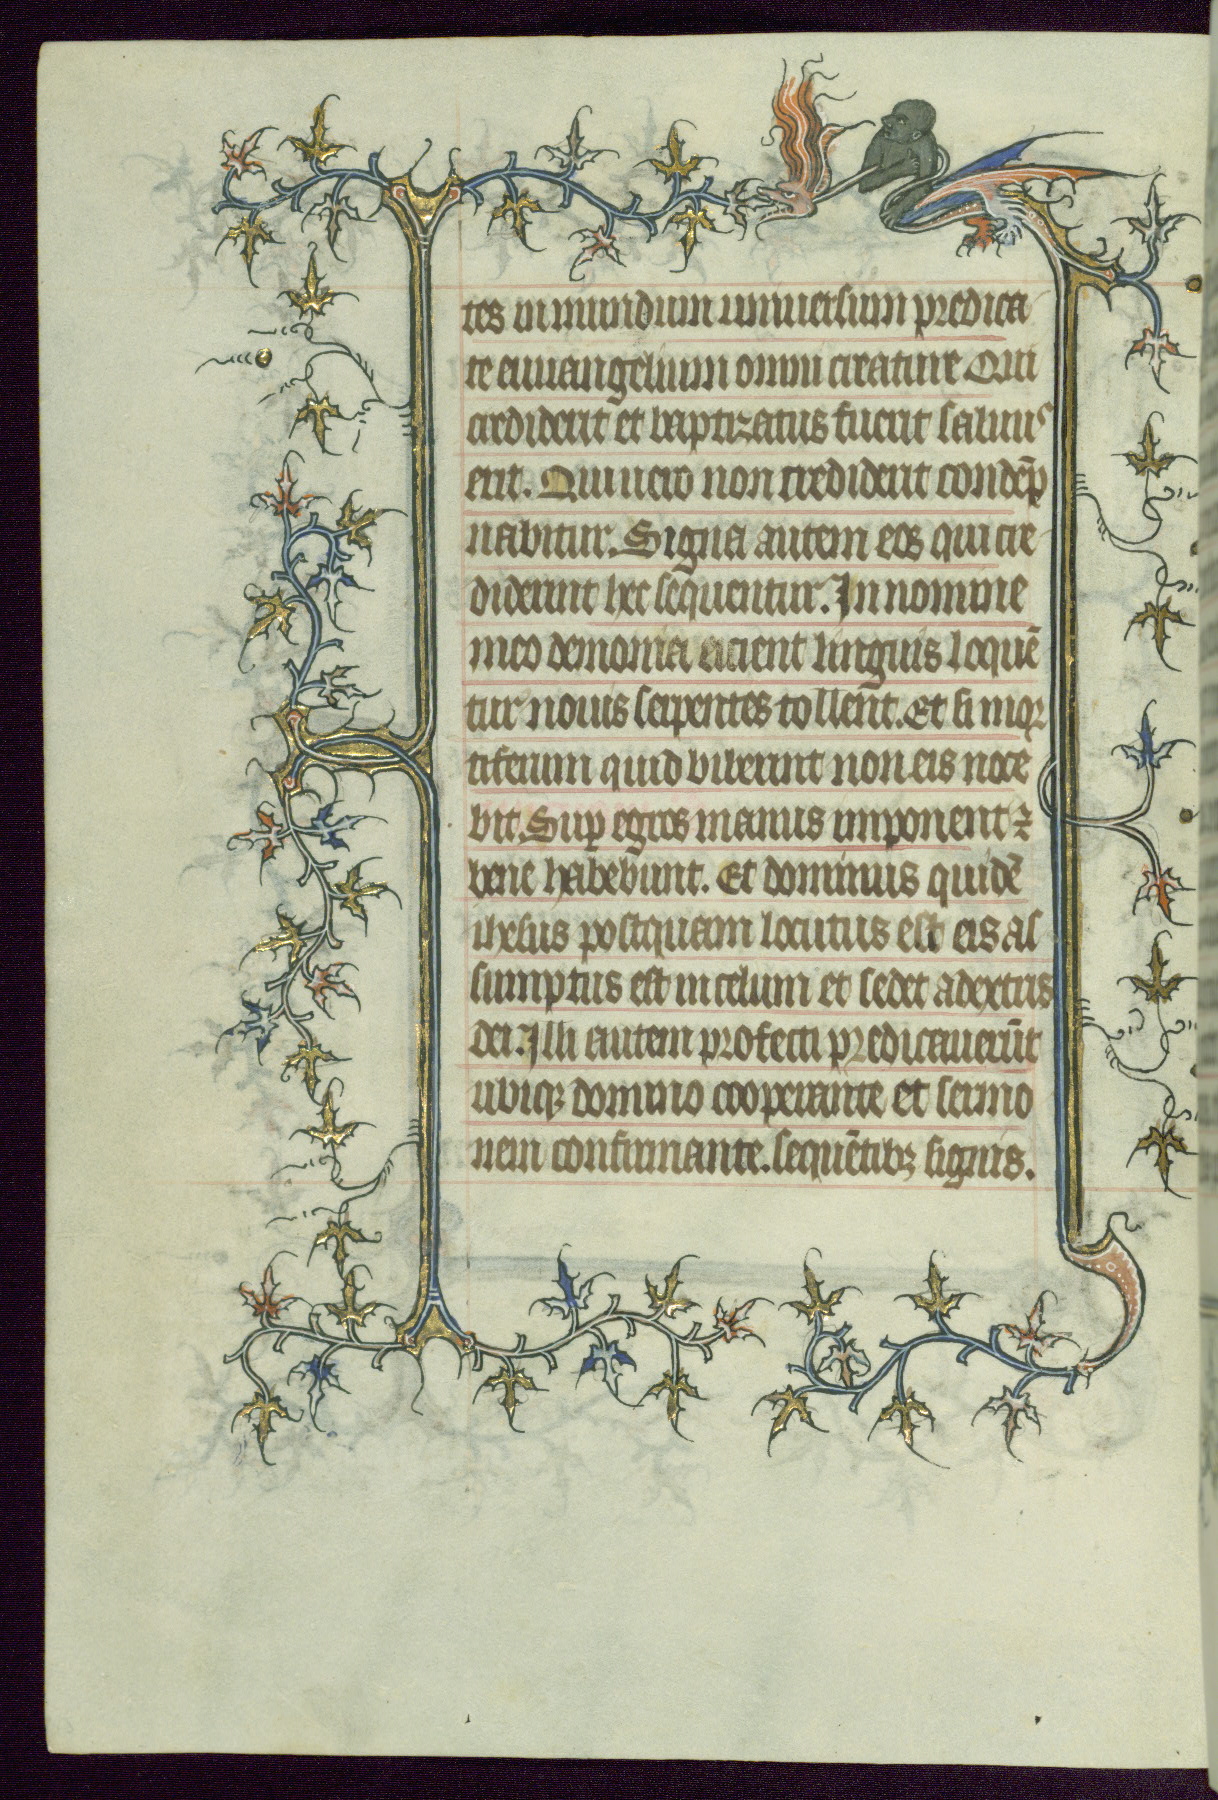 tes in mundum uniuersum predica
te euuangelium omni creature Qui
crediderit et baptizatus fuerit saluus
erit. Qui uero non crediderit condēp
nabitur. Signa autem eos qui cre
diderint hec sequentur. In nomine
meo demonia eicient linguis loquē
tur nouis serpentes tollent. Et si moꝝ
tiferum quid biberint non eis noce
bit. Sup egros manus imponent ⁊
bene habebunt. Et dominus quidē
ihesus postquam locutus est eis as
sumptus est in celum et sedet adextris
dei. Illi autem profecti predicauerūt
ubiqꝫ domino cooperante et sermo
nem confirmante. sequētibꝫ signis.